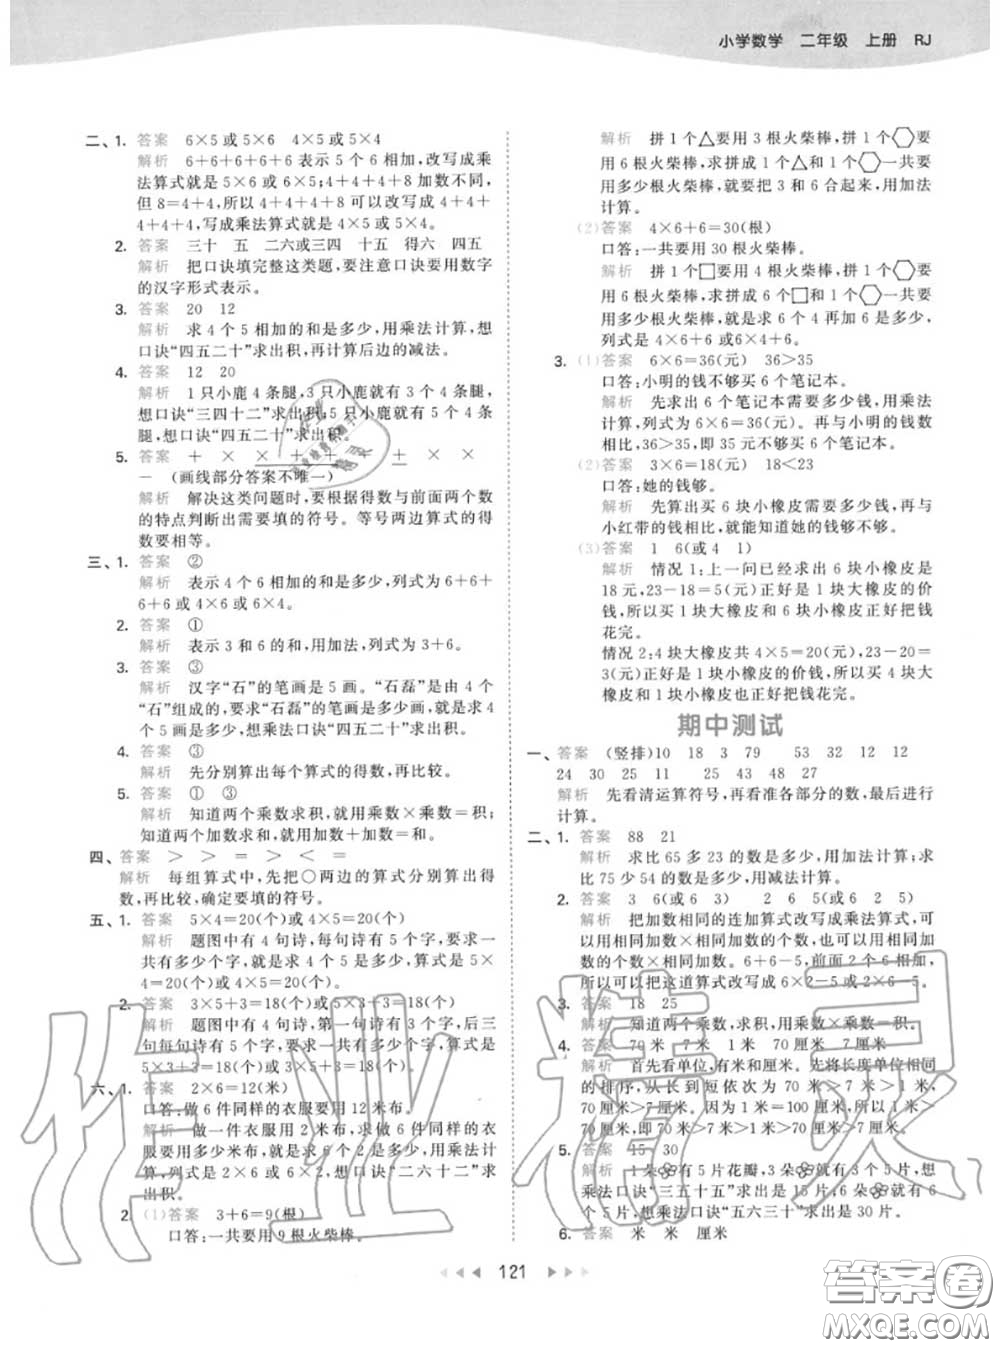 小学数学 二年级 上册 RJ
二、1. 答案 6×5或5×6 4×5或5×4
解析 6+6+6+6+6表示5个6相加,改写成乘
法算式就是5×6或6×5;4+4+4+8加数不同,
但8=4+4,所以4+4+4+8可以改写成4+4+
4+4+4,写成乘法算式就是4×5或5×4。
2. 答案 三十 五 二六或三四 十五 得六 四五
解析 把口诀填完整这类题,要注意口诀要用数字
的汉字形式表示。
3. 答案 20 12
解析 求4个5相加的和是多少,用乘法计算,想
口诀“四五二十”求出积,再计算后边的减法。
4. 答案 12 20
解析 1只小鹿4条腿,3只小鹿就有3个4条腿,
想口诀“三四十二”求出积;5只小鹿就有5个4条
腿,想口诀“四五二十”求出积。
5. 答案 + × × + + + × ×
— (画线部分答案不唯一)
解析 解决这类问题时,要根据得数与前面两个数
的特点判断出需要填的符号。等号两边算式的得
数要相等。
三、1. 答案 ②
解析 表示4个6相加的和是多少,列式为6+6+
6+6或4×6或6×4。
2. 答案 ①
解析 表示3和6的和,用加法,列式为3+6。
3. 答案 ③
解析 汉字“石”的笔画是5画。“石磊”是由4个
“石”组成的,要求“石磊”的笔画是多少画,就是求4
个5是多少,想乘法口诀“四五二十”求出积。
4. 答案 ③
解析 先分别算出每个算式的得数,再比较。
5. 答案 ① ③
解析 知道两个乘数求积,就用乘数×乘数=积;
知道两个加数求和,就用加数+加数=和。
四、答案 > > = > < =
解析 每组算式中,先把○两边的算式分别算出得
数,再比较,确定要填的符号。
五、1. 答案 5×4=20(个)或4×5=20(个)
解析 题图中有4句诗,每句诗有5个字,要求一
共有多少个字,就是求4个5是多少,算式是5×
4=20(个)或4×5=20(个)。
2. 答案 3×5+3=18(个)或5×3+3=18(个)
解析 题图中有4句诗,第一句诗有3个字,后三
句每句诗有5个字,要求一共有多少个字,算式是
5×3+3=18(个)或3×5+3=18(个)。
六、1. 答案 2×6=12(米)
口答:做6件同样的衣服要用12米布。
解析 做一件衣服用2米布,求做6件同样的衣
服要用多少米布,就是求6个2是多少,用乘法计
算,列式是2×6或6×2,想口诀“二六十二”求
出积。
2. (1)答案 3+6=9(根)
口答:一共要用9根火柴棒。
解析 拼1个△要用3根火柴棒,拼1个⬡要
用6根火柴棒,求拼成1个△和1个⬡一共要
用多少根火柴棒,就要把3和6合起来,用加法
计算。
(2)答案 4×6+6=30(根)
口答:一共要用30根火柴棒。
解析 拼1个□要用4根火柴棒,拼1个⬡要
用6根火柴棒,求拼成6个□和1个⬡一共要
用多少根火柴棒,就是求6个4再加6是多少,
列式是4×6+6或6×4+6。
3. (1)答案 6×6=36(元) 36>35
口答:小明的钱不够买6个笔记本。
解析 先求出6个笔记本需要多少钱,用乘法
计算,列式为6×6=36(元)。再与小明的钱数
相比,36>35,即35元不够买6个笔记本。
(2)答案 3×6=18(元) 18<23
口答:她的钱够。
解析 先算出买6块小橡皮要多少钱,再与
小红带的钱相比,就能知道她的钱够不够。
(3)答案 1 6(或4 1)
解析 情况1:上一问已经求出6块小橡皮是
18元,23-18=5(元)正好是1块大橡皮的价
钱,所以买1块大橡皮和6块小橡皮正好把钱
花完。
情况2:4块大橡皮共4×5=20(元),23-20=
3(元)正好是1块小橡皮的价钱,所以买4块大
橡皮和1块小橡皮正好把钱花完。
期中测试
一、答案 (竖排)10 18 3 79 53 32 12 12
24 30 25 11 25 43 48 27
解析 先看清运算符号,再看准各部分的数,最后进行
计算。
二、1. 答案 88 21
解析 求比65多23的数是多少,用加法计算;
求比75少54的数是多少,用减法计算。
2. 答案 3 6(或6 3) 2 6 5(或6 2 5)
解析 把加数相同的连加算式改写成乘法算式,可
以用相同加数×相同加数的个数,也可以用相同加
数的个数×相同加数。6+6-5,前面2个6相加,
所以可以把这道算式改写成6×2-5或2×6-5。
3. 答案 18 25
解析 知道两个乘数,求积,用乘数×乘数=积。
4. 答案 70米 7米 1米 70厘米 7厘米
解析 首先看单位,有米和厘米。先将长度单位相同
的排序,从长到短依次为70米>7米>1米,
70厘米>7厘米。因为1米=100厘米,所以1米>
70厘米,即70米>7米>1米>70厘米>7厘米。
5. 答案 15 30
解析 1朵有5片花瓣,3朵就有3个5片,想
乘法口诀“三五十五”得出是15片;6朵就有6
个5片,想乘法口诀“五六三十”求出是30片。
6. 答案 米 米 厘米
121
作业精灵
答案圈
MXQE.COM